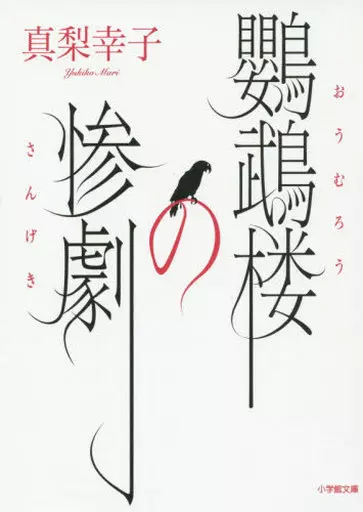 鸚鵡楼
おうむろう
の
惨劇
さんげき
真梨幸子
Yukiko Mari
小学館文庫